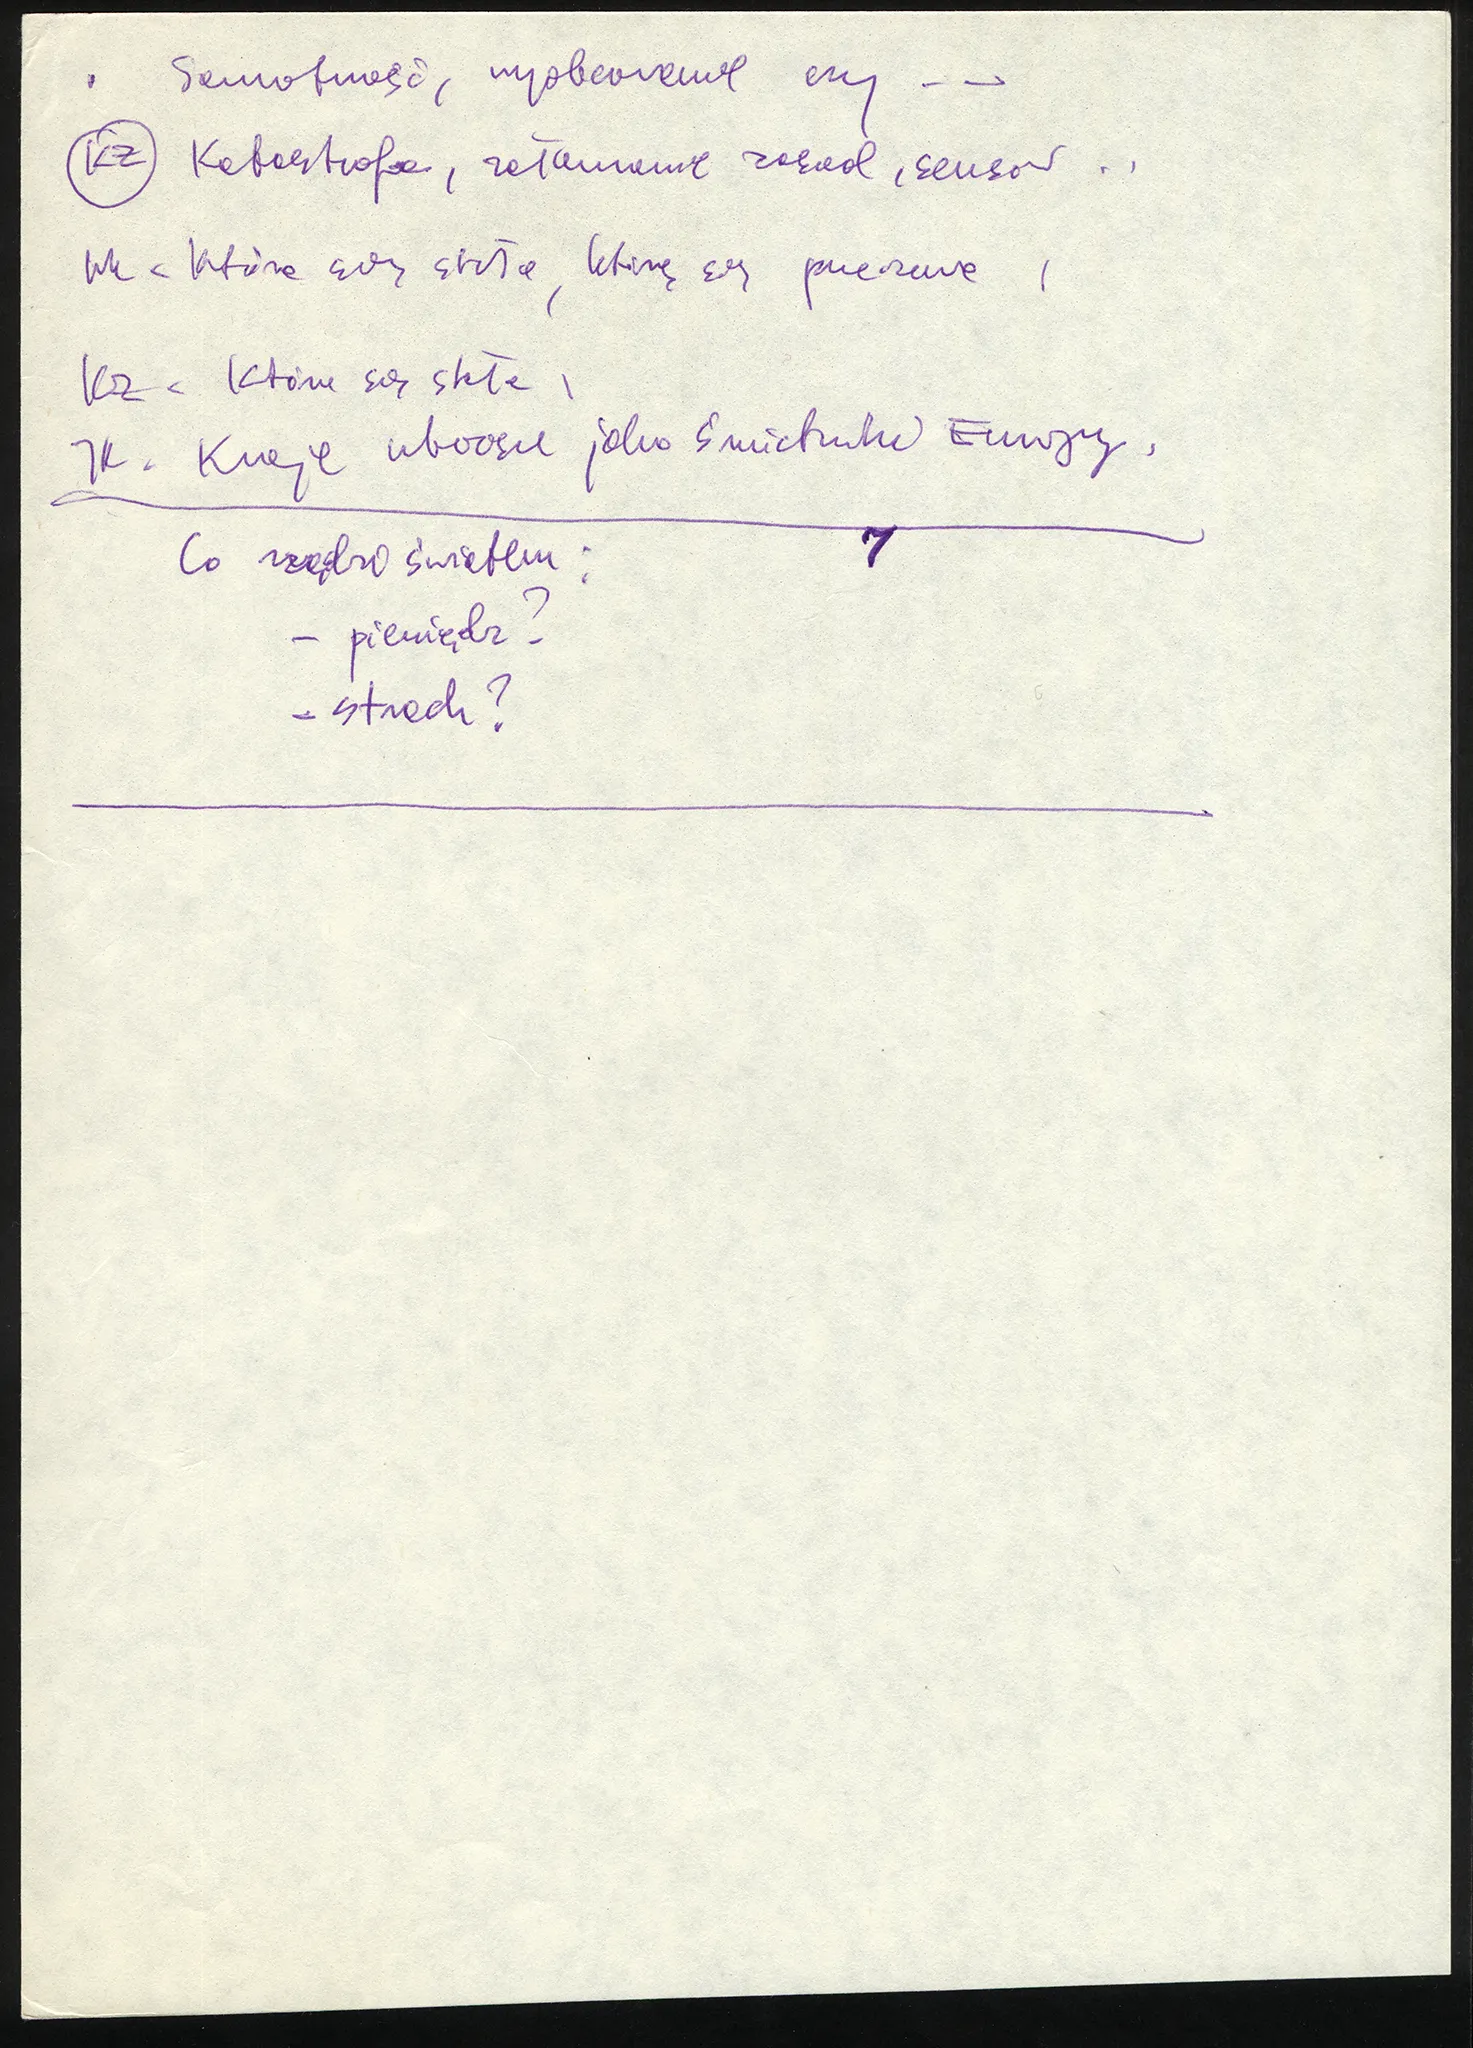 . Samotność, wyobcowanie czy ---
KZ Katastrofa, załamanie zasad, sensów ..
WK - Które są stałe, które są pozorne,
KZ - Które są stałe,
JK - Kraje uboższe jako śmietniki Europy.
Co rządzi światem:
- pieniądz?
- strach?